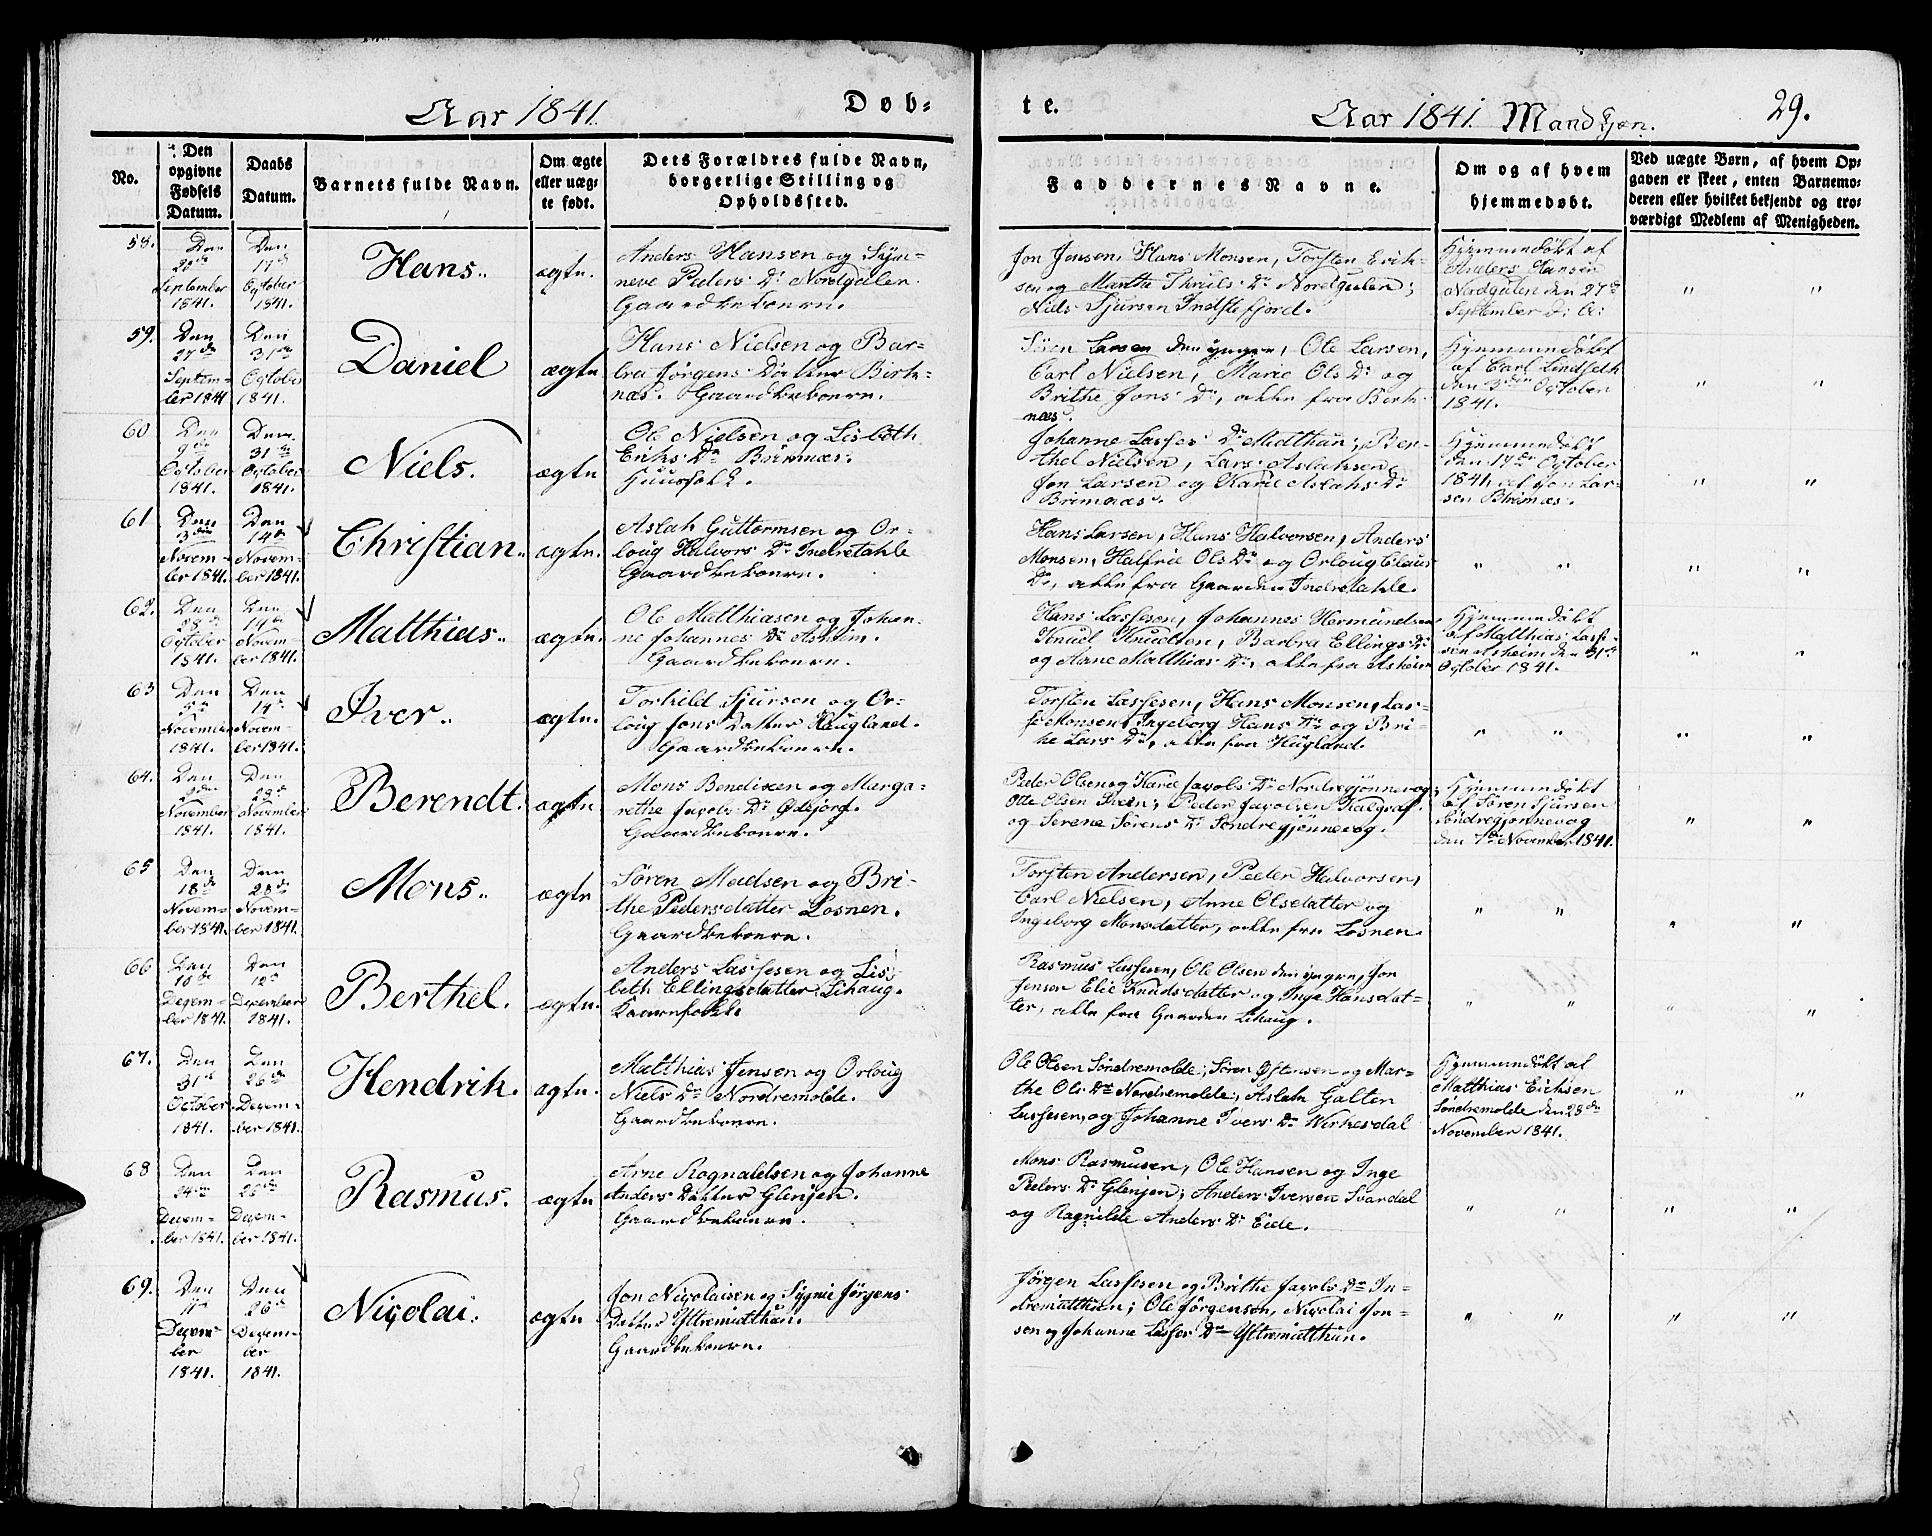 Aar 1841. Døb-
te. Aar 1841. Mandkjøn. 29.
No.
Den opgivne Fødsels Datum.
Daabs Datum.
Barnets fulde Navn.
Om ægte eller uægte født.
Dets Forældres fulde Navn, borgerlige Stilling og Opholdssted.
Faddernes Navne.
Om og af hvem hjemmedøbt.
Ved uægte Børn, af hvem Opgaven er skeet, enten Barnemoderen eller hvilket bekjendt og troværdigt Medlem af Menigheden.
58.
Den
September
1841.
Den
17de
October
1841.
Hans.
ægte.
Anders Hansen og Syn-
neve Peders Dr Nordgulen.
Gaardbeboere.
Jon Jonsen, Hans Monsen, Torsten Erik-
sen og Marthe Nordgulen;
Niels Sjursen Indstefjord.
Hjemmedøbt af
Anders Hansen
Nordgulen den 27de
September d: A:
" "
59.
Den
27de
Septem-
ber 1841
Den
31te
October
1841.
Daniel
ægte
Hans Nielsen og Bar-
bra Jørgens Datter Birk-
næs. Gaardbeboere.
Søren Larsen den yngre, Ole Larsen,
Carl Nielsen, Marie Ols Dr og
Brithe Jons Dr, alle fra Birk-
næs.
Hjemmedøbt
af Carl Lindseth
den 3die October
1841.
" "
60
Den
9de
October
1841.
Den
31te
October
1841.
Niels.
ægte
Ole Nielsen og Lisbeth
Eriks Dr Brimnæs.
Huusfolk.
Johanne Lasses Dr Midthun; Ber-
thel Nielsen, Lars Aslaksen,
Jon Larsen og Kari Aslaks Dr
Brimnæs.
Hjemmedøbt
den 17de October
1841, af Jon Lar-
sen Brimnæs.
" "
61
Den
3die
Novem-
ber 1841.
Den
14de
Novem-
ber 1841.
Christian.
ægte.
Aslak Guttormsen og Or-
loug Halvors Dr Indretakle
Gaardbeboere.
Hans Larsen, Hans Halvorsen, Anders
Monsen, Halfrid Ols Dr og Orloug Claus
Dr, alle fra Gaarden Indretakle.
" "
" "
62.
Den
28de
October
1841.
Den
14de
Novem-
ber 1841.
Matthias.
ægte.
Ole Matthiasen og Johan-
ne Johannes Dr Asheim.
Gaardbeboere.
Hans Lassesen, Johannes Hermundsen
Knud Knudsen, Barbra Ellings Dr
og Anne Matthias Dr, alle fra Asheim
Hjemmedøbt
af Matthias Lasse-
sen Asheim den 31te
October 1841.
" "
63
Den
5te
November
1841.
Den
14de
Novem-
ber 1841.
Iver.
ægte.
Torkild Sjursen og Or-
loug Jons Datter Haugland.
Gaardbeboere.
Torsten Lassesen, Hans Monsen, Las-
se Monsen, Ingeborg Hans Dr og Bri-
the Lars Dr, alle fra Hugland.
" "
" "
64.
Den
November
1841.
Den
28de
November
1841.
Berendt.
ægte
Mons Bendixen og Marga-
rethe Jacobs Dr Ødejord.
Gaardbeboere.
Peder Olsen og Karie Jacobs Dr Nordregjønnevog,
Otte Olsen Steen; Peder Jacobsen Kalgraf
og Serene Sørens Dr Søndregjønnevog.
Hjemmedøbt
af Søren Sjursen
Søndregjønnevog
den 7de November 1841.
" "
65
Den
18de
Novem-
ber 1841.
Den
28de
Novem-
ber 1841.
Mons.
ægte
Søren Madsen og Bri-
the Pedersdatter Losnen.
Gaardbeboere.
Torsten Andersen, Peder Halvorsen,
Carl Nielsen, Anne Olsdatter og
Ingeborg Monsdatter, alle fra Losnen.
" "
" "
66
Den
Decem-
ber 1841.
Den
12te
December
1841.
Berthel.
ægte.
Anders Lassesen og Lis-
beth Ellingsdatter Lihaug.
Kaarefolk.
Rasmus Lassesen, Ole Olsen den yngre, Jon
Jensen Elie Knudsdatter og Inge Hansdat-
ter, alle fra Gaarden Lihaug.
" "
" "
67.
Den
31te
October
1841.
Den
26de
Decem-
ber 1841.
Hendrik.
ægte.
Matthias Jensen og Orloug
Niels Dr Nordremolde.
Gaardbeboere.
Ole Olsen Søndremolde; Søren Østensen og Mar-
the Ols Dr Nordremolde; Aslak Galten
Lassesen, og Johanne Ivers Dr Wirkesdal
Hjemmedøbt af
Matthias Erichsen
Søndremolde den 28de
November 1841.
" "
68
Den
Decem-
ber 1841.
Den
26de
Decem-
ber 1841.
Rasmus.
ægte
Arne Rognaldsen og Johanne
Anders Datter Glenjen.
Gaardbeboere.
Mons Rasmusen, Ole Hansen og Inge
Peders Dr Glenjen; Anders Iversen Svardal
og Ragnilde Anders Dr Eide.
" "
" "
69.
Den
Decem-
ber
1841.
Den
26de
Decem-
ber
1841.
Nicolai.
ægte
Jon Nicolaisen og Sygnie Jørgens
Datter Yttremidthun.
Gaardbeboere.
Jørgen Lassesen og Brithe Jacobs Dr In-
dremidthun; Ole Jørgenson, Nicolai Jon-
sen og Johanne Lasses Dr Yttremidthun.
" "
" "